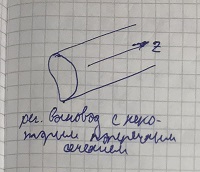 z
рег. волновод с неко-
торым поперечным
сечением